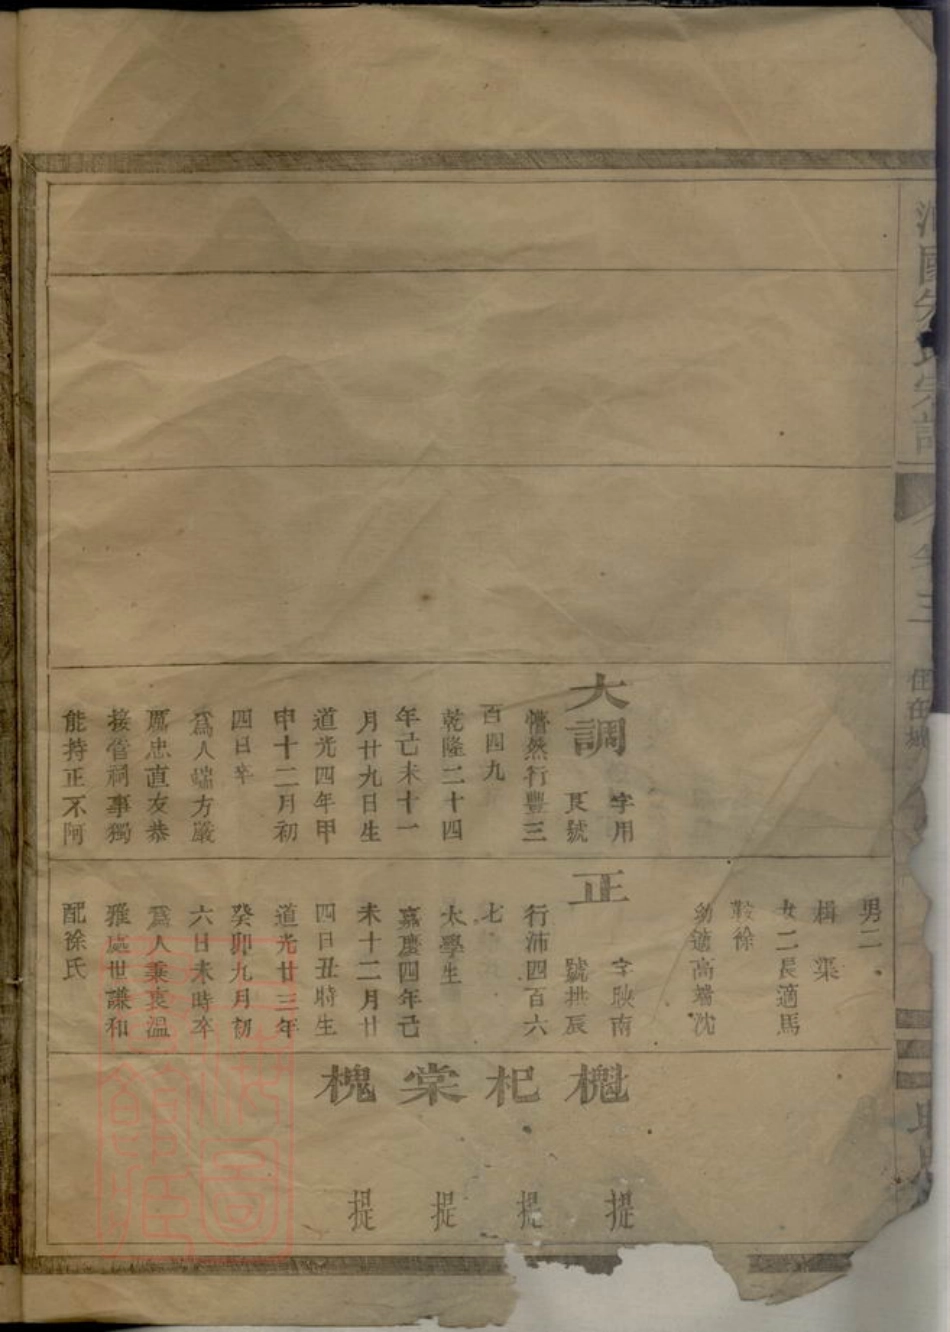 國 氏宗譜
卷三
大調
字用
長號
懵然行豐三
百四九
乾隆二十四
年己未十一
月廿九日生
道光四年甲
申十二月初
四日卒
為人端方嚴
厲忠直友恭
接管祠事獨
能持正不阿
男二
楫 渠
女二長適馬
鞍徐
幼適高 沈
正
字映南
號拱辰
行沛四百六
七
太學生
嘉慶四年己
未十二月廿
四日丑時生
道光廿三年
癸卯九月初
六日未時卒
為人秉衷溫
雅處世謙和
配徐氏
杞
提
提
棠
提
槐
提